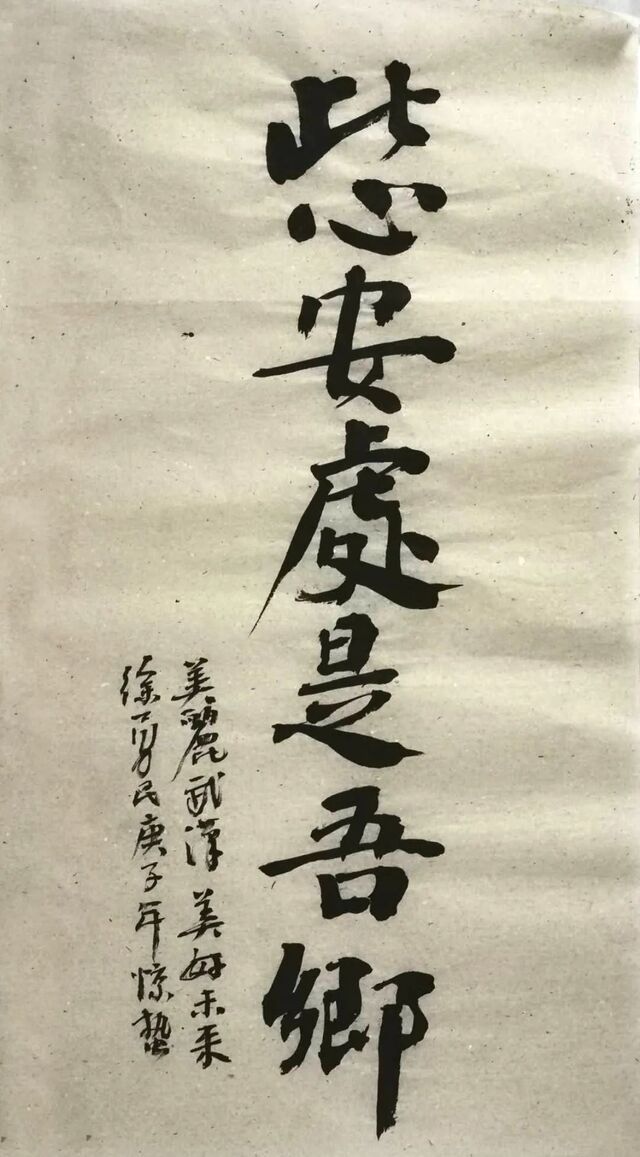 此心安處是吾鄉
美麗武漢美好未来
徐勇民庚子年惊蟄